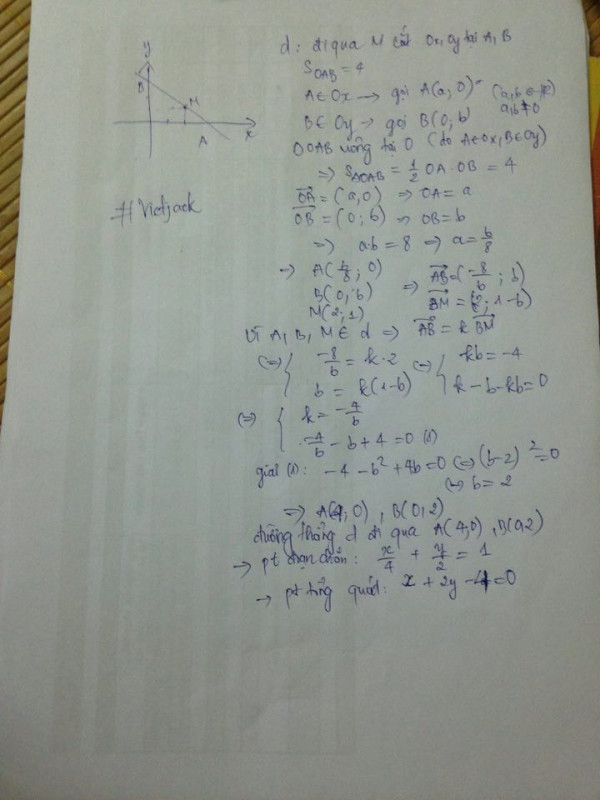 y
B
M
A
x
#Vietjack
d: đi qua M cắt Ox, Oy tại A, B
S_OAB = 4
A∈Ox → gọi A(a; 0) (a, b ∈ R
a, b ≠ 0
B∈Oy → gọi B(0; b)
ΔOAB vuông tại O (do A∈Ox, B∈Oy)
⇒ S_ΔOAB = 1/2 OA . OB = 4
OA = (a, 0) ⇒ OA = a
OB = (0; b) ⇒ OB = b
⇒ a.b = 8 ⇒ a = b/8
⇒ A(b/8; 0)
B(0; b)
M(2; 1)
⇒ AB = (-8/b; b)
BM = (2; 1-b)
Vì A, B, M ∈ d ⇒ AB = k BM
(=) { -8/b = k.2
b = k(1-b)
(=) { kb = -4
k - b - kb = 0
(=) { k = -4/b
-4/b - b + 4 = 0 (1)
giải (1): -4 - b² + 4b = 0 (=) (b-2)² = 0
(=) b = 2
⇒ A(4, 0), B(0; 2)
đường thẳng d đi qua A(4,0), B(0,2)
→ pt đoạn chắn: x/4 + y/2 = 1
→ pt tổng quát: x + 2y - 4 = 0